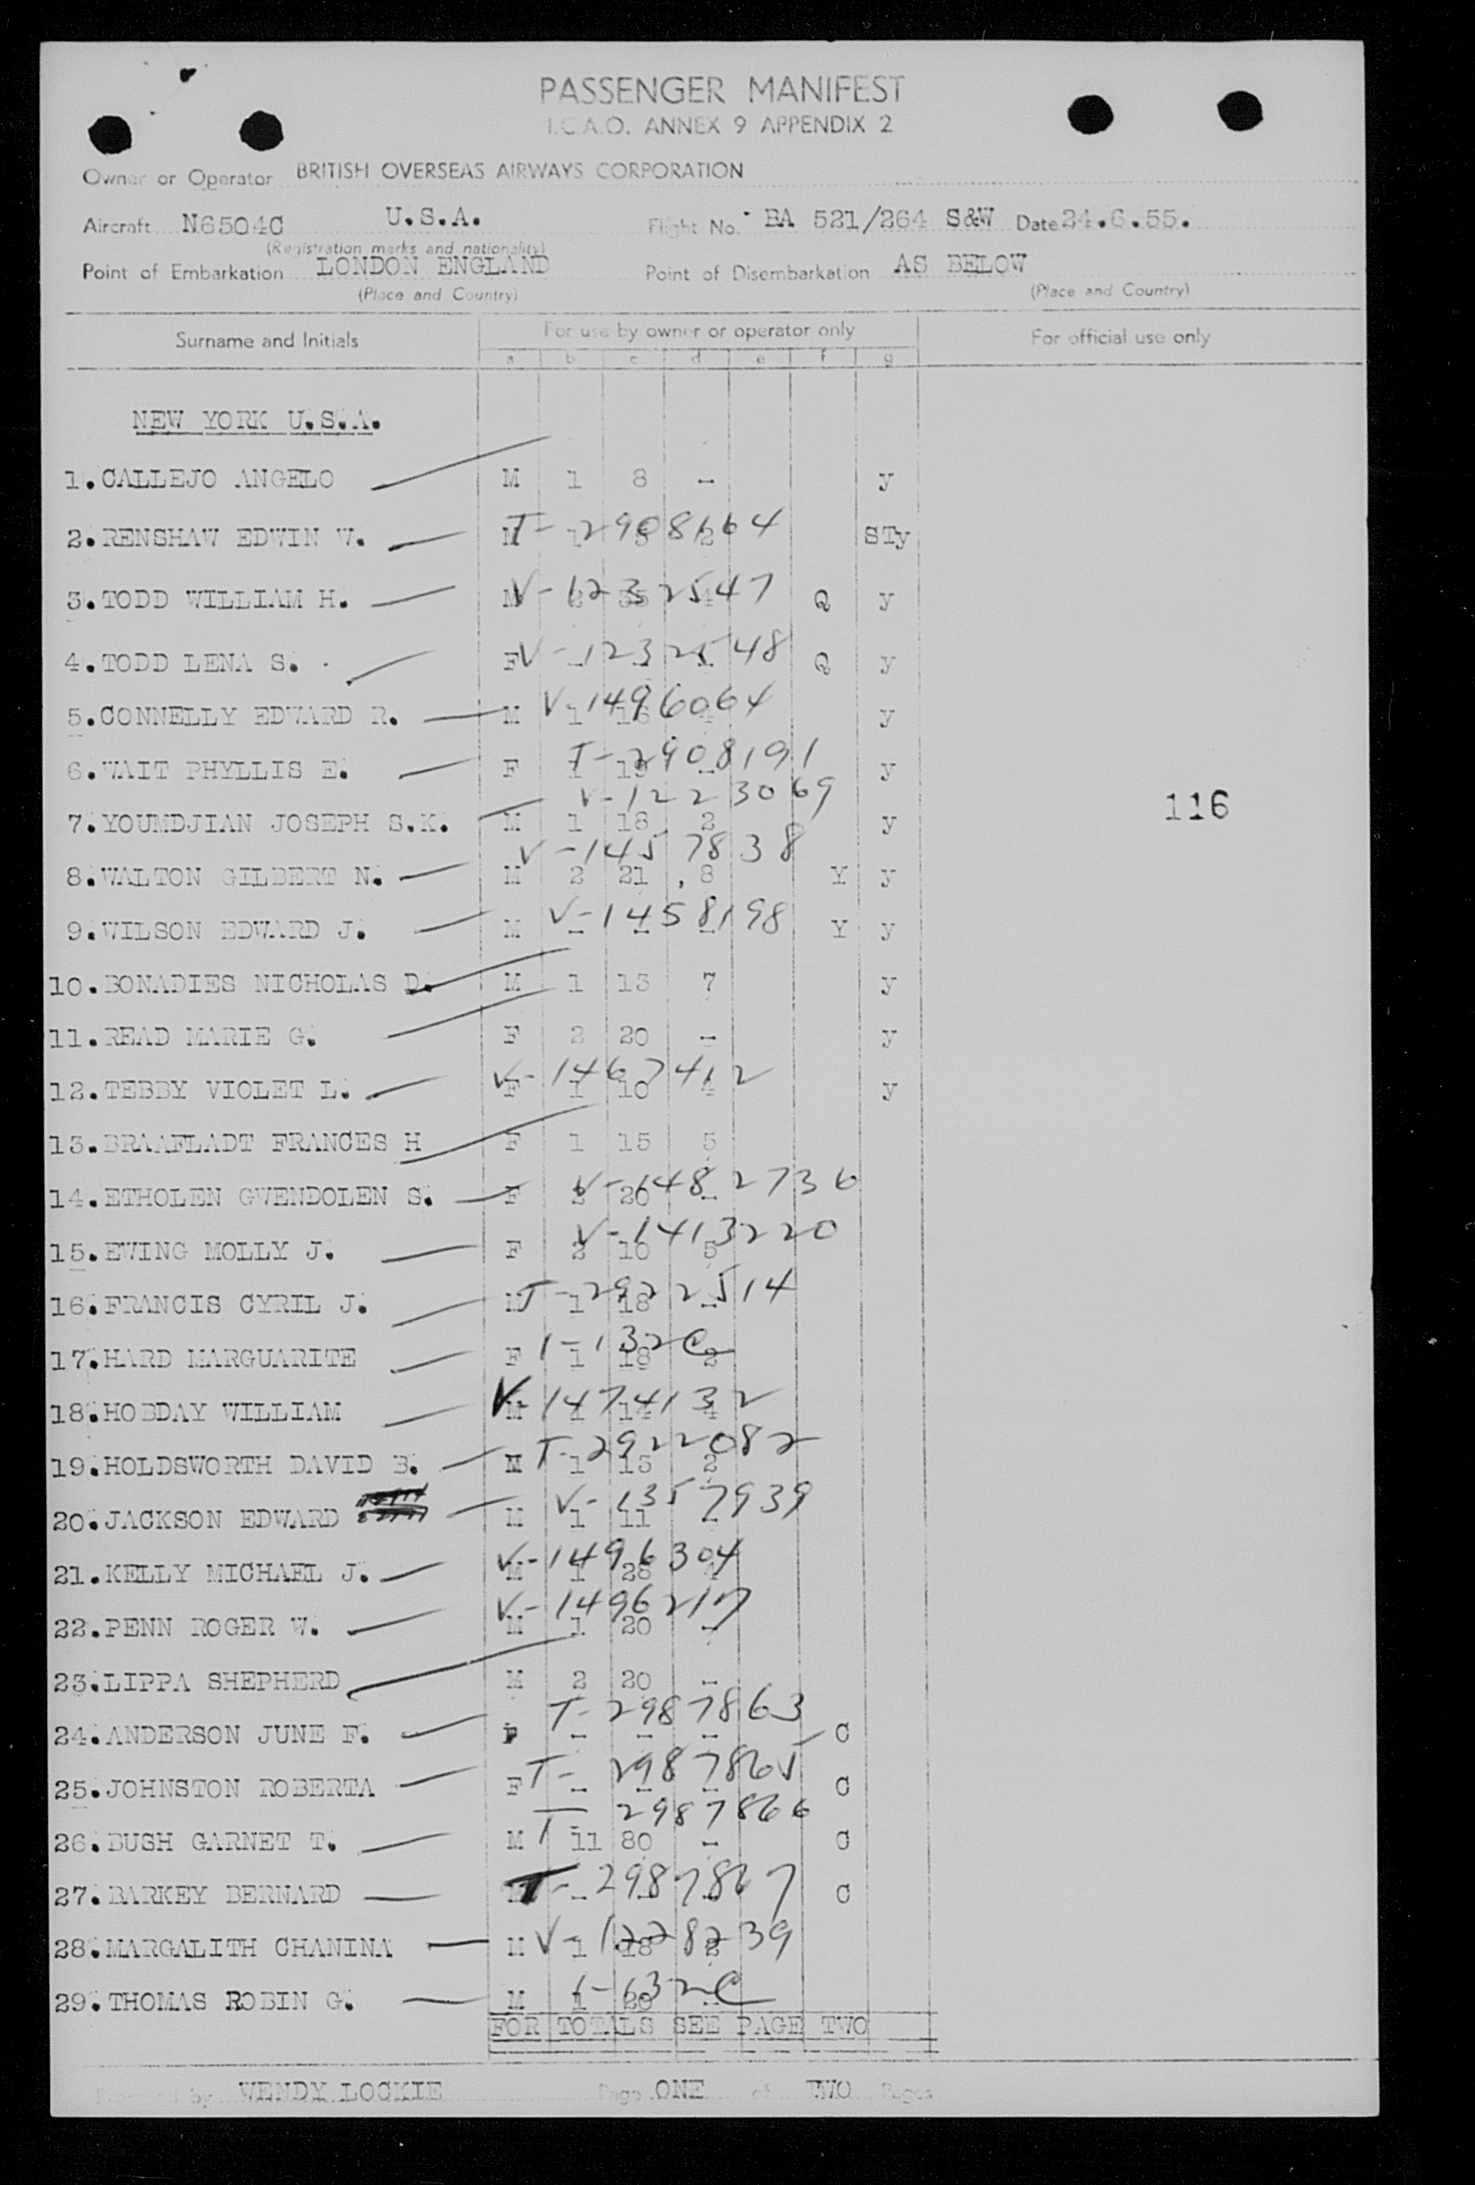 PASSENGER MANIFEST
I.C.A.O. ANNEX 9 APPENDIX 2
Owner or Operator BRITISH OVERSEAS AIRWAYS CORPORATION
Aircraft N6504C U.S.A. Flight No. BA 521/264 S&W Date 24.6.55.
(Registration marks and nationality)
Point of Embarkation LONDON ENGLAND Point of Disembarkation AS BELOW
(Place and Country) (Place and Country)
Surname and Initials For use by owner or operator only For official use only
a b c d e f g
NEW YORK U.S.A.
1. CALLEJO ANGELO M 1 8 - y
T-2908164
2. RENSHAW EDWIN W. M 1 2 STy
V-1232547
3. TODD WILLIAM H. M 2 4 Q y
V-1232548
4. TODD LENA S. F - - - Q y
V-1496064
5. CONNELLY EDWARD R. M 1 16 y
T-2908191
6. WAIT PHYLLIS E. F 1 19 - y
V-1223069
7. YOUMDJIAN JOSEPH S.K. M 1 18 2 y
V-1457838
8. WALTON GILBERT N. M 2 21 8 Y y
V-1458198
9. WILSON EDWARD J. M - - - Y y
10. BONADIES NICHOLAS D. M 1 13 7 y
116
11. READ MARIE G. F 2 20 - y
V-1467412
12. TEBBY VIOLET L. F 1 10 4 y
13. BRAAFLADT FRANCES H F 1 15 5
V-1482736
14. ETHOLEN GWENDOLEN S. F 2 20 -
V-1413220
15. EWING MOLLY J. F 2 10 5
T-2922514
16. FRANCIS CYRIL J. M 1 18 -
1-132C
17. HARD MARGUARITE F 1 18 2
V-1474132
18. HOBDAY WILLIAM M 1 14 4
T-2922082
19. HOLDSWORTH DAVID B. M 1 15 2
V-1357939
20. JACKSON EDWARD M 1 11 -
V-1496304
21. KELLY MICHAEL J. M 1 26 4
V-1496217
22. PENN ROGER W. M 1 20 -
23. LIPPA SHEPHERD M 2 20 -
T-2987863
24. ANDERSON JUNE F. F - - - C
T-2987865
25. JOHNSTON ROBERTA F - - - C
T-2987866
26. BUSH GARNET T. M 11 80 - C
T-2987867
27. BARKEY BERNARD M - - - C
V-1228239
28. MARGALITH CHANINA M 1 18 2
1-132C
29. THOMAS ROBIN G. M 1 20 -
FOR TOTALS SEE PAGE TWO
Prepared by WENDY LOCKIE Page ONE of TWO Pages